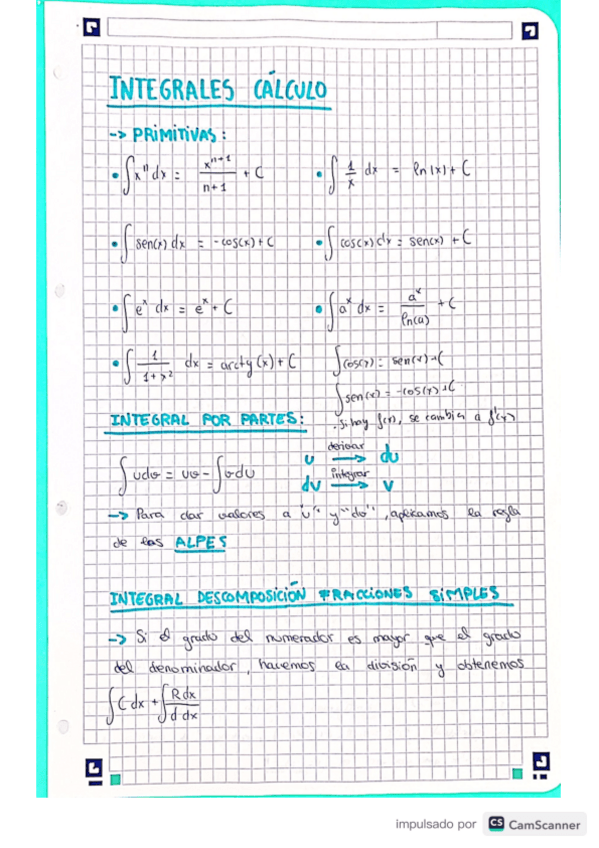 INTEGRALES CÁLCULO
-> PRIMITIVAS:
• ∫x^n dx = x^(n+1)/(n+1) + C
• ∫ 1/x dx = ln|x| + C
• ∫ sen(x) dx = -cos(x) + C
• ∫ cos(x) dx = sen(x) + C
• ∫ e^x dx = e^x + C
• ∫ a^x dx = a^x/ln(a) + C
• ∫ 1/(1+x²) dx = arctg(x) + C
∫cos(x) = sen(x)+C
∫sen(x) = -cos(x)+C
INTEGRAL POR PARTES:
. si hay f(x), se cambia a f'(x)
∫udv = uv - ∫vdu
u derivar -> du
dv integrar -> v
-> Para dar valores a "u" y "dv", aplicamos la regla
de los ALPES
INTEGRAL DESCOMPOSICIÓN FRACCIONES SIMPLES
-> Si el grado del numerador es mayor que el grado
del denominador, hacemos la división y obtenemos
∫C dx + ∫ R dx / d dx
impulsado por CS CamScanner